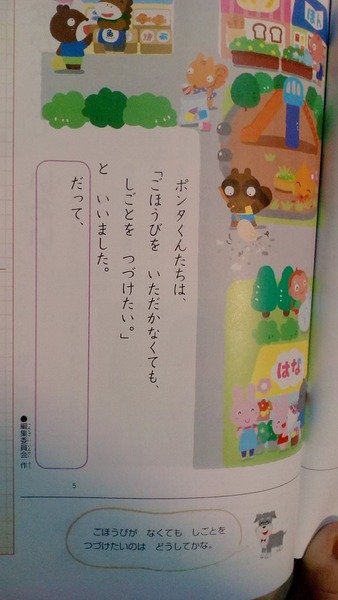 ほん
魚
ポンタくんたちは、
「ごほうびを いただかなくても、
しごとを つづけたい。」
と いいました。
だって、
はな
●編集委員会 作
5
ごほうびが なくても しごとを
つづけたいのは どうしてかな。